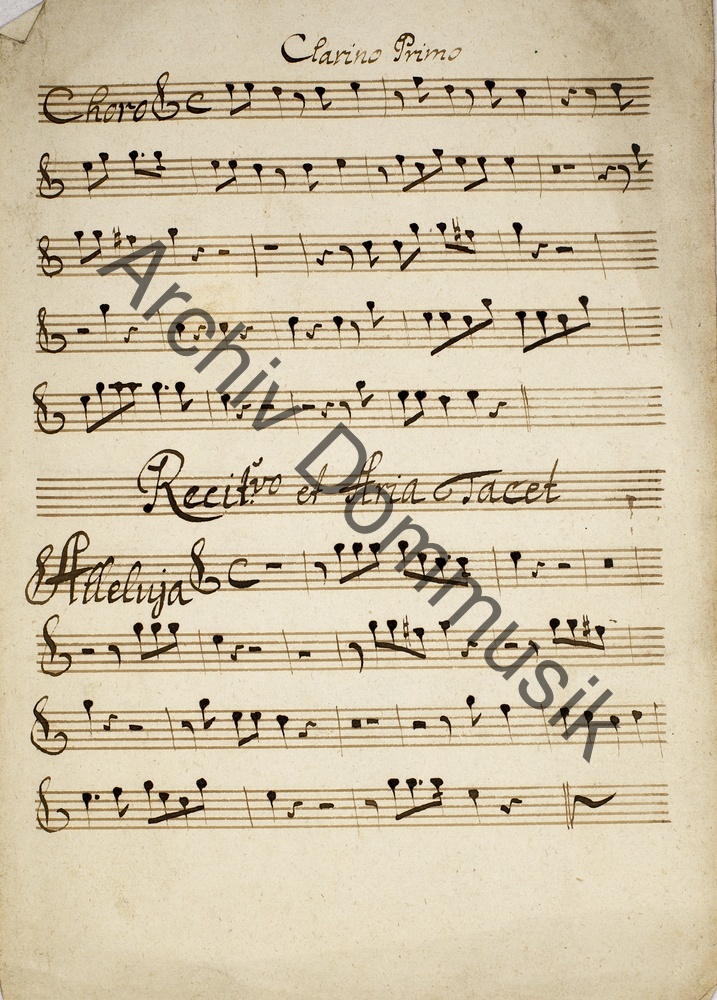 Clarino Primo
Choro
Recit:vo et Aria Tacet
Alleluja
Archiv Dommusik